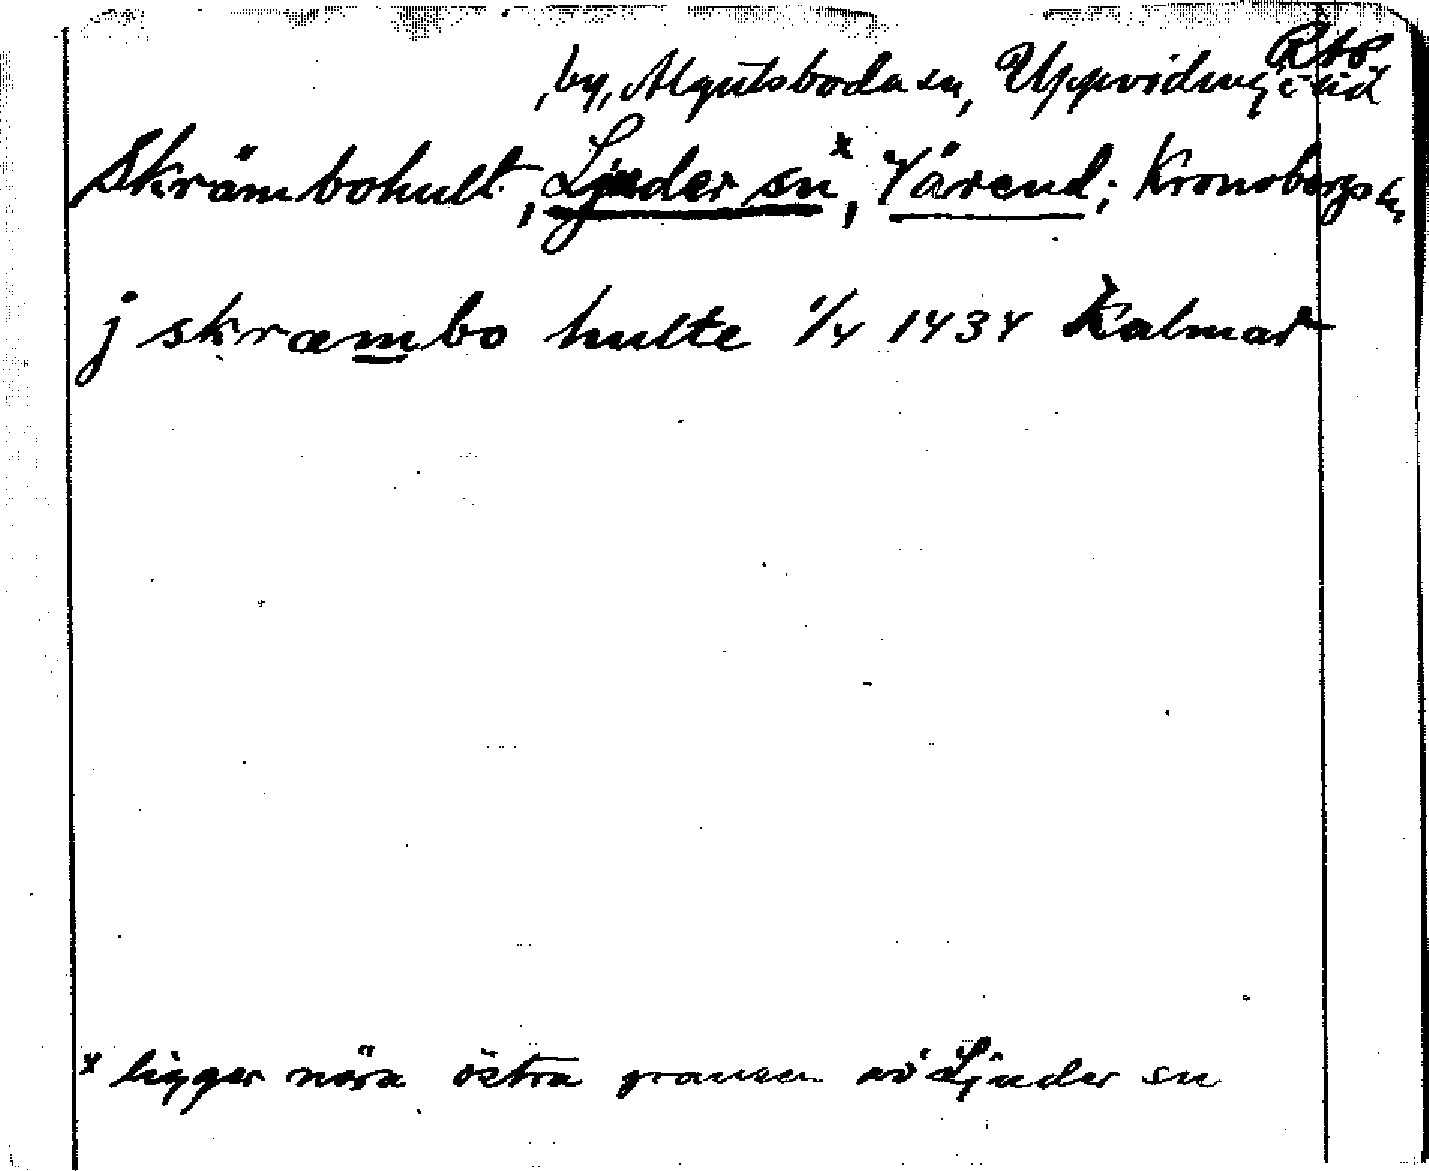 , by, Algutsboda sn, Uppvidinge hd
Skrämbohult, Ljuder sn x, Värend; Kronobergs l,
j skræmbo hulte 1/4 1434 Kalmar
x ligger nära östra gränsen av Ljuder sn